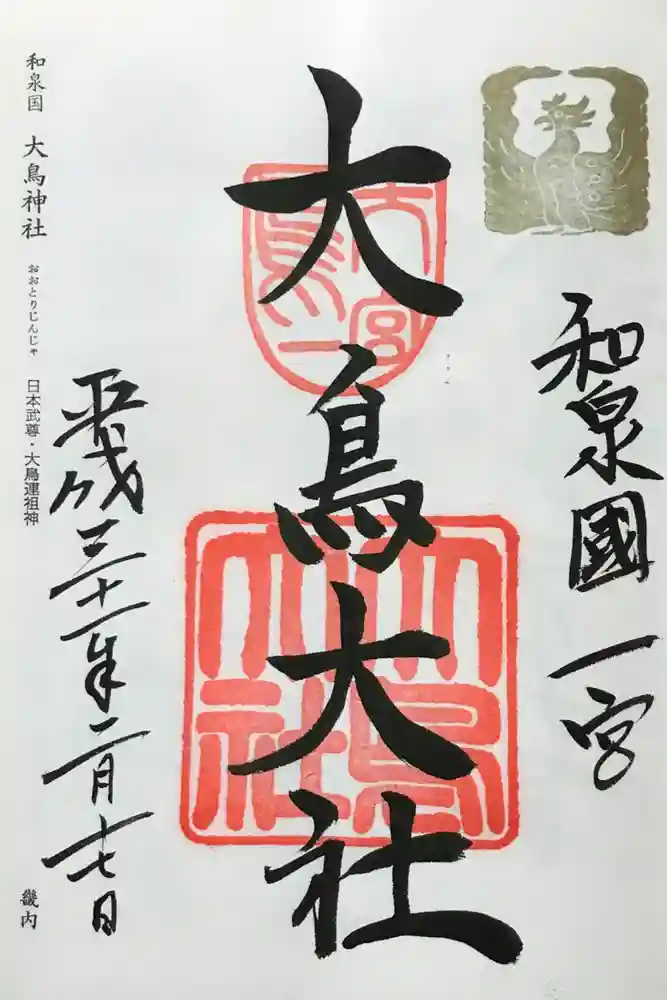 和泉國一宮
大鳥大社
大鳥一宮
大鳥大社
平成三十一年二月十七日
和泉国 大鳥神社 おおとりじんじゃ 日本武尊・大鳥連祖神 畿内